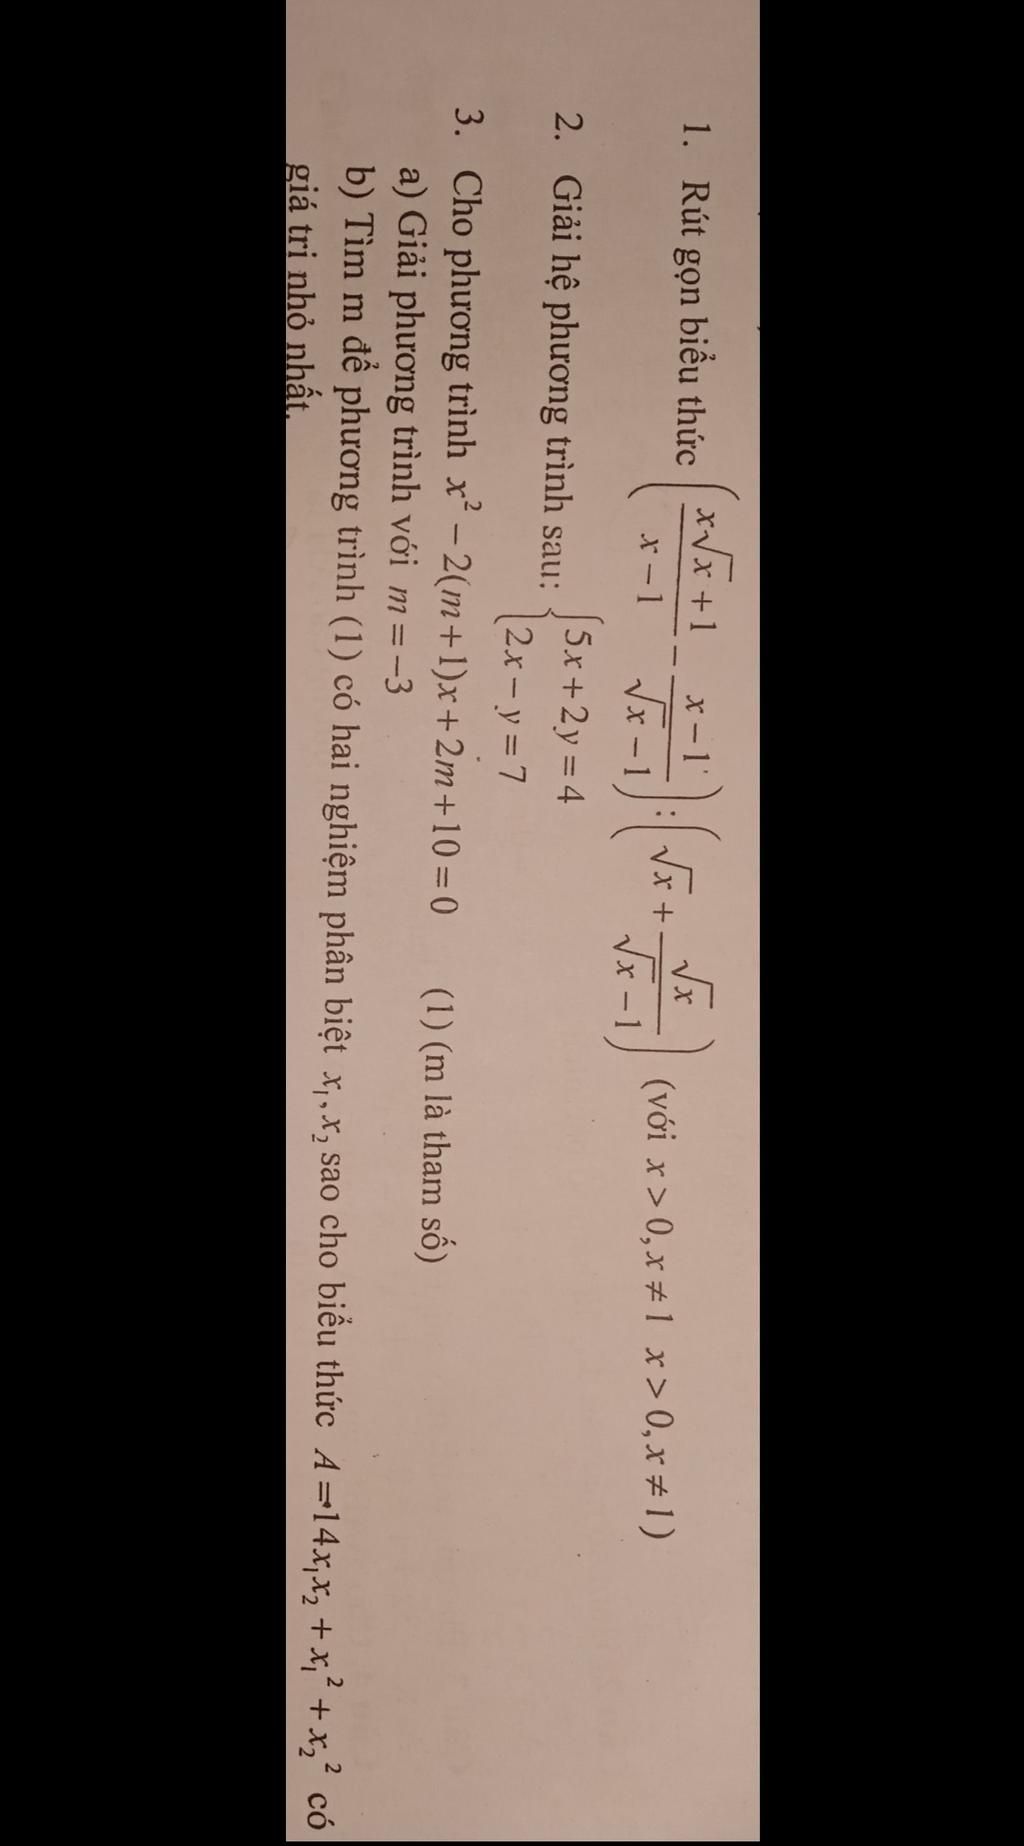 1. Rút gọn biểu thức (x√x + 1 / x − 1 − x − 1 / √x − 1) : (√x + √x / √x − 1) (với x > 0, x ≠ 1 x > 0, x ≠ 1)
2. Giải hệ phương trình sau: { 5x + 2y = 4
2x − y = 7
3. Cho phương trình x² − 2(m+1)x + 2m + 10 = 0 (1) (m là tham số)
a) Giải phương trình với m = −3
b) Tìm m để phương trình (1) có hai nghiệm phân biệt x₁, x₂ sao cho biểu thức A = 14x₁x₂ + x₁² + x₂² có
giá trị nhỏ nhất.